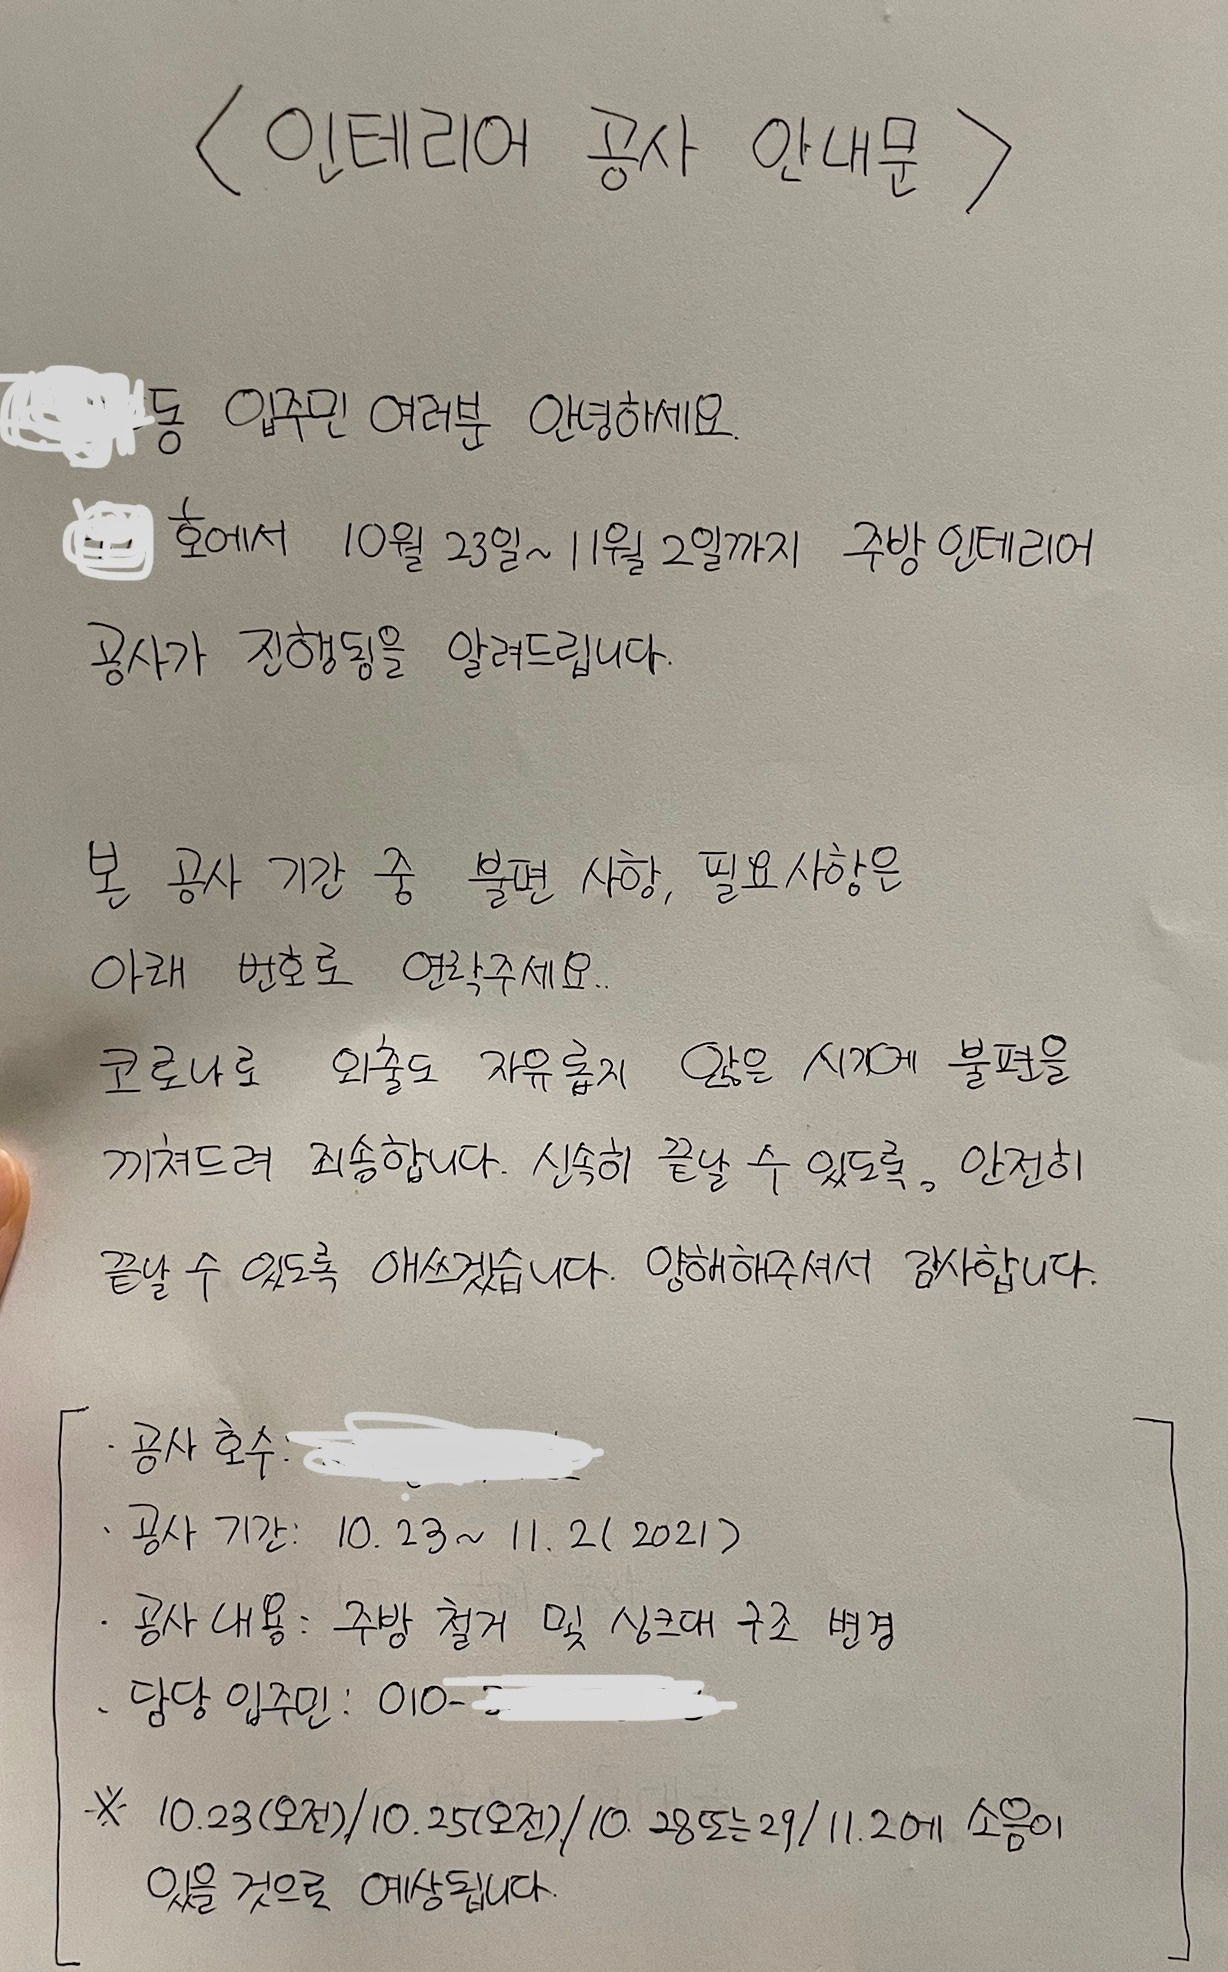 < 인테리어 공사 안내문 >
동 입주민 여러분 안녕하세요.
호에서 10월 23일~11월 2일까지 주방 인테리어
공사가 진행됨을 알려드립니다.
본 공사 기간 중 불편 사항, 필요사항은
아래 번호로 연락주세요..
코로나로 외출도 자유롭지 않은 시기에 불편을
끼쳐드려 죄송합니다. 신속히 끝날 수 있도록, 안전히
끝날 수 있도록 애쓰겠습니다. 양해해주셔서 감사합니다.
· 공사 호수:
· 공사 기간: 10. 23~ 11. 2( 2021)
· 공사 내용: 주방 철거 및 싱크대 구조 변경
· 담당 입주민: 010-
※ 10.23(오전)/10.25(오전)/10. 28또는29/11.2에 소음이
있을 것으로 예상됩니다.